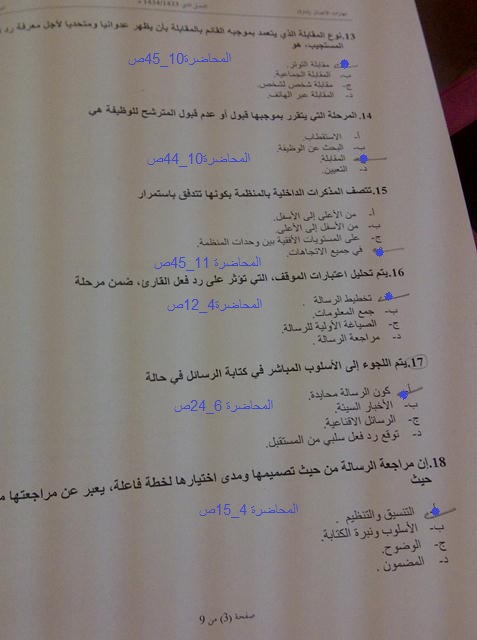 مهارات الاتصال
1434/1433
13.نوع المقابلة الذي يتعمد بموجبه القائم بالمقابلة بأن يظهر عدوانيا ومتحديا لأجل معرفة رد
المستجيب، هو
المحاضرة10_45ص
أ- مقابلة التوتر.
ب- المقابلة الجماعية.
ج- مقابلة شخص لشخص.
د- المقابلة عبر الهاتف.
14. المرحلة التي يتقرر بموجبها قبول أو عدم قبول المترشح للوظيفة هي
أ- الاستقطاب.
ب- البحث عن الوظيفة.
المحاضرة10_44ص
المقابلة.
د- التعيين.
15.تتصف المذكرات الداخلية بالمنظمة بكونها تتدفق باستمرار
أ- من الأعلى إلى الأسفل.
ب- من الأسفل إلى الأعلى.
ج- على المستويات الأفقية بين وحدات المنظمة.
في جميع الاتجاهات.
المحاضرة 11_45ص
16.يتم تحليل اعتبارات الموقف، التي تؤثر على رد فعل القارئ، ضمن مرحلة
تخطيط الرسالة .
المحاضرة4_12ص
ب- جمع المعلومات.
ج- الصياغة الأولية للرسالة.
د- مراجعة الرسالة .
17.يتم اللجوء إلى الأسلوب المباشر في كتابة الرسائل في حالة
أ- كون الرسالة محايدة.
المحاضرة 6_24ص
ب- الأخبار السيئة.
ج- الرسائل الاقناعية.
د- توقع رد فعل سلبي من المستقبل.
18.إن مراجعة الرسالة من حيث تصميمها ومدى اختيارها لخطة فاعلة، يعبر عن مراجعتها
حيث
المحاضرة 4_15ص
أ- التنسيق والتنظيم .
ب- الأسلوب ونبرة الكتابة.
ج- الوضوح.
د- المضمون .
صفحة (3) من 9